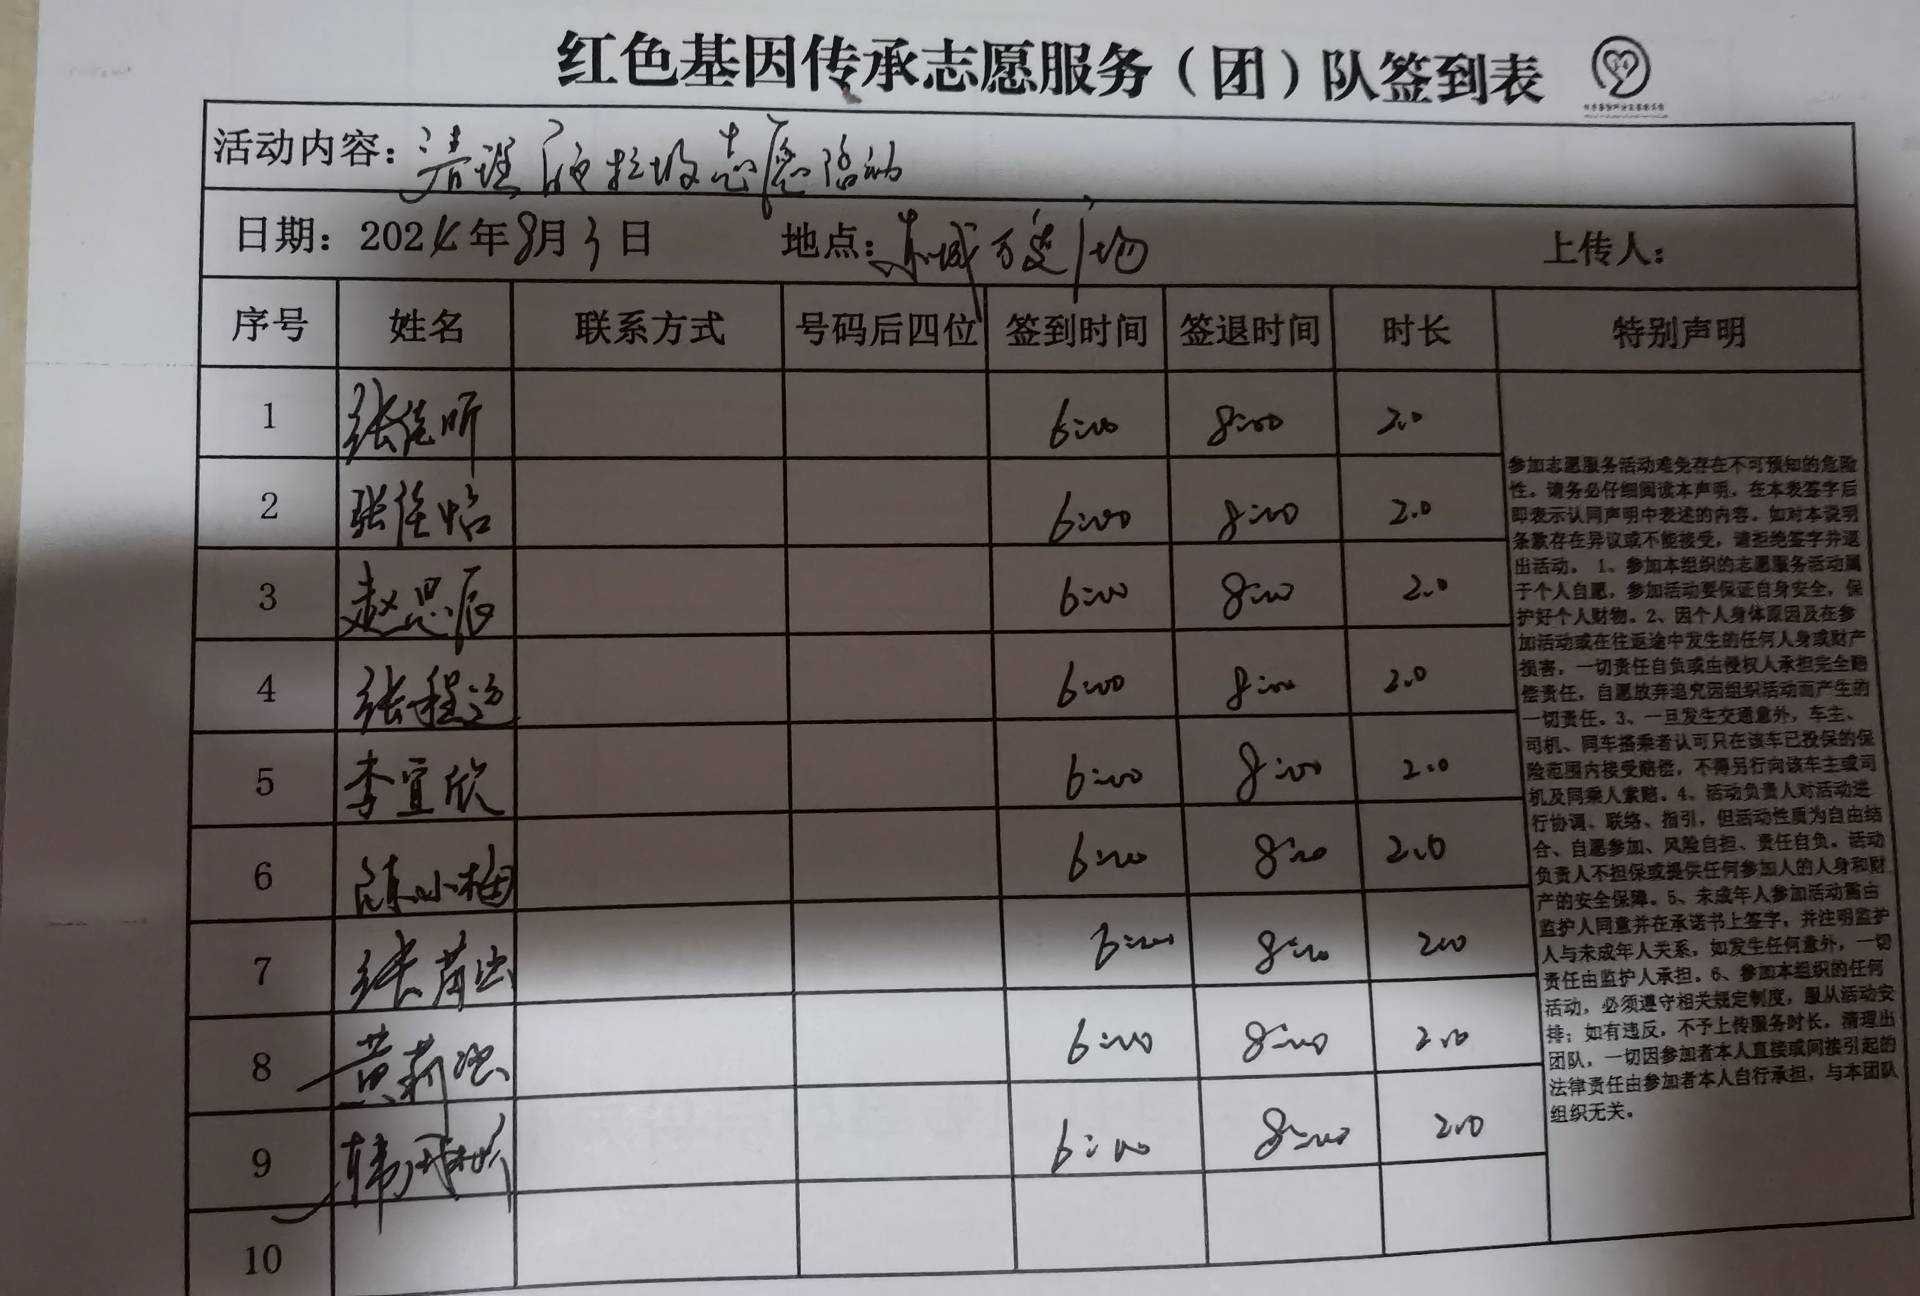 红色基因传承志愿服务（团）队签到表
活动内容：清理 垃圾志愿活动
日期：2024年8月3日 地点：东城 广场 上传人：
序号 姓名 联系方式 号码后四位 签到时间 签退时间 时长 特别声明
1 张 昕 6:00 8:00 2.0
2 张佳怡 6:00 8:00 2.0
3 赵思辰 6:00 8:00 2.0
4 张程 6:00 8:00 2.0
5 李宜欣 6:00 8:00 2.0
6 小梅 6:00 8:00 2.0
7 张 6:00 8:00 2.0
8 黄莉 6:00 8:00 2.0
9 韩 6:00 8:00 2.0
10
参加志愿服务活动难免存在不可预知的危险
性。请务必仔细阅读本声明。在本表签字后
即表示认同声明中表述的内容。如对本说明
条款存在异议或不能接受，请拒绝签字并退
出活动。1、参加本组织的志愿服务活动属
于个人自愿，参加活动要保证自身安全，保
护好个人财物。2、因个人身体原因及在参
加活动或在往返途中发生的任何人身或财产
损害，一切责任自负或由侵权人承担完全赔
偿责任，自愿放弃追究因组织活动而产生的
一切责任。3、一旦发生交通意外，车主、
司机、同车搭乘者认可只在该车已投保的保
险范围内接受赔偿，不得另行向该车主或司
机及同乘人索赔。4、活动负责人对活动进
行协调、联络、指引，但活动性质为自由结
合、自愿参加、风险自担、责任自负。活动
负责人不担保或提供任何参加人的人身和财
产的安全保障。5、未成年人参加活动需由
监护人同意并在承诺书上签字，并注明监护
人与未成年人关系，如发生任何意外，一切
责任由监护人承担。6、参加本组织的任何
活动，必须遵守相关规定制度，服从活动安
排；如有违反，不予上传服务时长，清理出
团队，一切因参加者本人直接或间接引起的
法律责任由参加者本人自行承担，与本团队
组织无关。